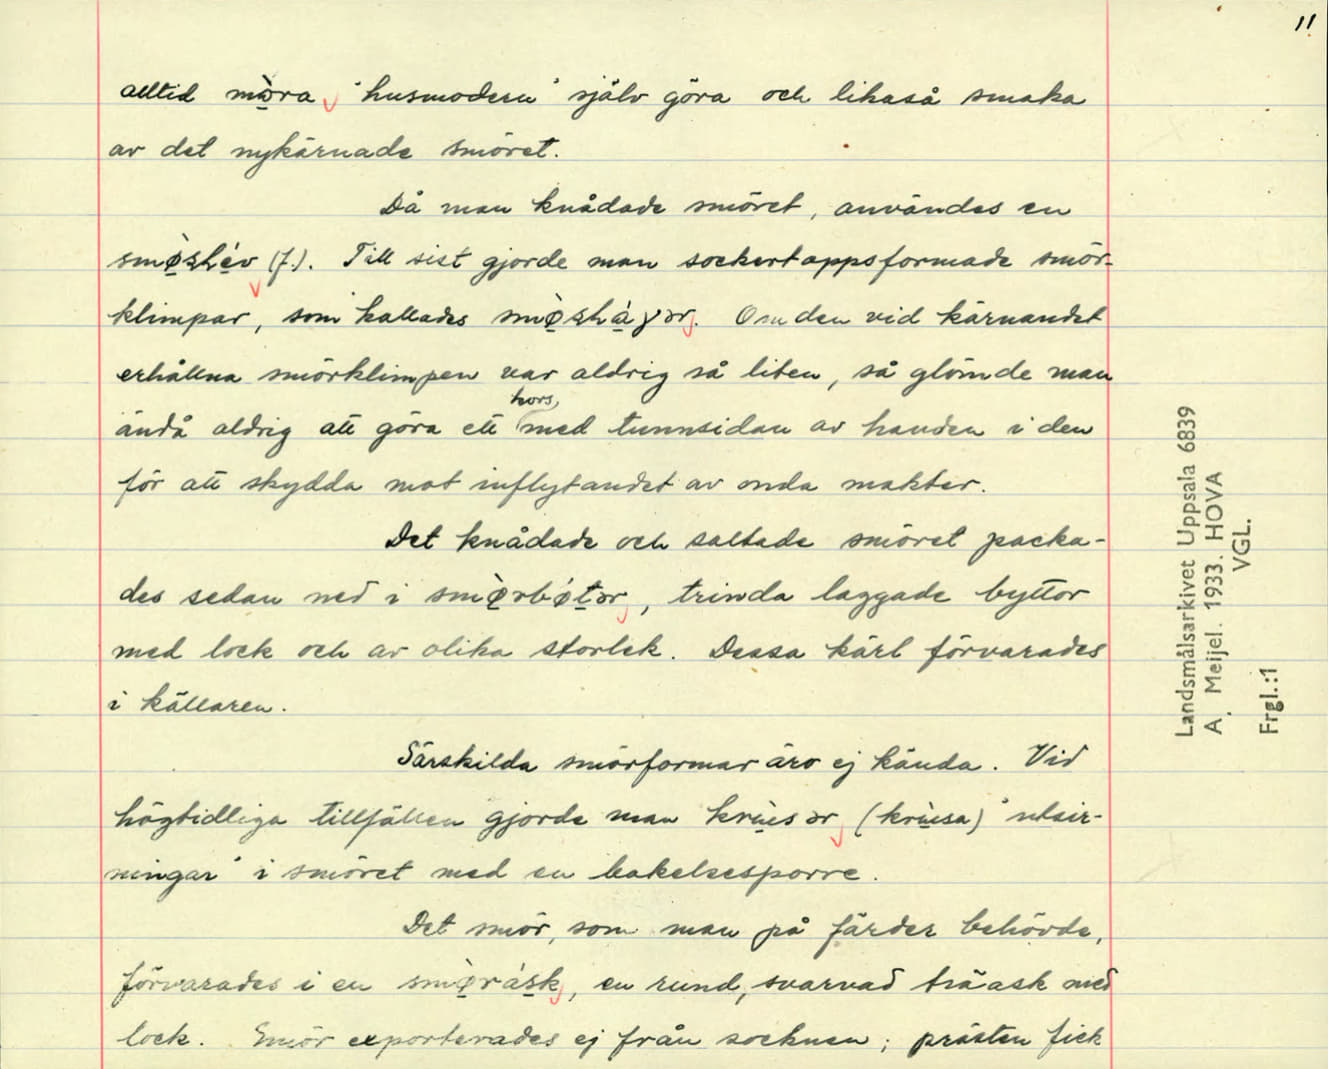 11
alltid mø̀ra 'husmodern' själv göra och likaså smaka
av det nykärnade smöret.
Då man knådade smöret, användes en
smø̀slév (f.). Till sist gjorde man sockertoppsformade smör-
klimpar, som kallades smø̀shá̱γər. Om den vid kärnandet
erhållna smörklimpen var aldrig så liten, så glömde man
ändå aldrig att göra ett kors med tunnsidan av handen i den
för att skydda mot inflytandet av onda makter.
Det knådade och saltade smöret packa-
des sedan ned i smø̀rbǿtər, trinda laggade byttor
med lock och av olika storlek. Dessa kärl förvarades
i källaren.
Särskilda smörformar äro ej kända. Vid
högtidliga tillfällen gjorde man krùsər (krùsa) 'utsir-
ningar' i smöret med en bakelsesporre.
Det smör, som man på färder behövde,
förvarades i en smø̀rásk, en rund, svarvad träask med
lock. Smör exporterades ej från socknen; prästen fick
Landsmålsarkivet Uppsala 6839
A. Meijel. 1933. HOVA
VGL.
Frgl.:1